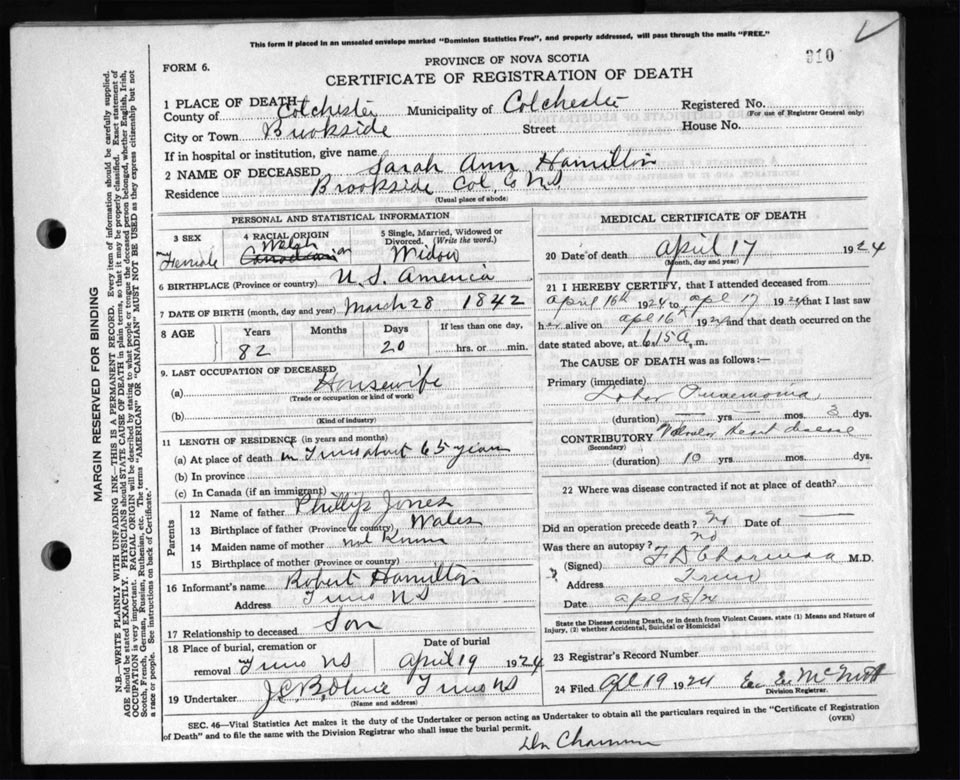 This form if placed in an unsealed envelope marked "Dominion Statistics Free", and properly addressed, will pass through the mails "FREE."
310
PROVINCE OF NOVA SCOTIA
FORM 6.
CERTIFICATE OF REGISTRATION OF DEATH
1 PLACE OF DEATH
County of Colchester Municipality of Colchester Registered No.
(For use of Registrar General only)
City or Town Brookside Street House No.
If in hospital or institution, give name
2 NAME OF DECEASED Sarah Ann Hamilton
Residence Brookside Col. Co NS
(Usual place of abode)
PERSONAL AND STATISTICAL INFORMATION
3 SEX 4 RACIAL ORIGIN 5 Single, Married, Widowed or Divorced. (Write the word.)
Female Welsh Canadian Widow
6 BIRTHPLACE (Province or country) U.S. America
7 DATE OF BIRTH (month, day and year) March 28 1842
8 AGE Years Months Days If less than one day,
82 20 hrs. or min.
9. LAST OCCUPATION OF DECEASED
(a) Housewife
(Trade or occupation or kind of work)
(b)
(Kind of industry)
11 LENGTH OF RESIDENCE (in years and months)
(a) At place of death in Truro about 65 years
(b) In province
(c) In Canada (if an immigrant)
Parents
12 Name of father Phillip Jones
13 Birthplace of father (Province or country) Wales
14 Maiden name of mother not known
15 Birthplace of mother (Province or country)
16 Informant's name Robert Hamilton
Address Truro NS
17 Relationship to deceased Son
18 Place of burial, cremation or removal Truro NS Date of burial April 19 1924
19 Undertaker Truro NS
(Name and address)
MEDICAL CERTIFICATE OF DEATH
20 Date of death April 17 1924
(Month, day and year)
21 I HEREBY CERTIFY, that I attended deceased from
April 16th 1924 to Apl 17 1924 that I last saw
her alive on Apl 16th 1924 and that death occurred on the
date stated above, at 6.15 A. m.
The CAUSE OF DEATH was as follows:—
Primary (immediate)
Lobar Pneumonia
(duration) — yrs — mos. 3 dys.
CONTRIBUTORY Valvular heart disease
(Secondary)
(duration) 10 yrs. mos. dys.
22 Where was disease contracted if not at place of death?
Did an operation precede death? no Date of —
Was there an autopsy? no
(Signed) M.D.
? Address Truro
Date Apl 18/24
State the Disease causing Death, or in death from Violent Causes, state (1) Means and Nature of
Injury, (2) whether Accidental, Suicidal or Homicidal
23 Registrar's Record Number
24 Filed Apl 19 1924
Division Registrar.
SEC. 46—Vital Statistics Act makes it the duty of the Undertaker or person acting as Undertaker to obtain all the particulars required in the "Certificate of Registration
of Death" and to file the same with the Division Registrar who shall issue the burial permit.
(OVER)
MARGIN RESERVED FOR BINDING
N.B.—WRITE PLAINLY WITH UNFADING INK—THIS IS A PERMANENT RECORD. Every item of information should be carefully supplied.
AGE should be stated EXACTLY. PHYSICIANS should STATE CAUSE OF DEATH in plain terms, so that it may be properly classified. Exact statement of
OCCUPATION is very important. RACIAL ORIGIN will be described by stating to what people or tongue the deceased person belonged, whether English, Irish,
Scotch, French, German, Russian, Ruthenian, etc. The terms "AMERICAN" or "CANADIAN" MUST NOT BE USED as they express citizenship but not
a race or people. See instructions on back of Certificate.